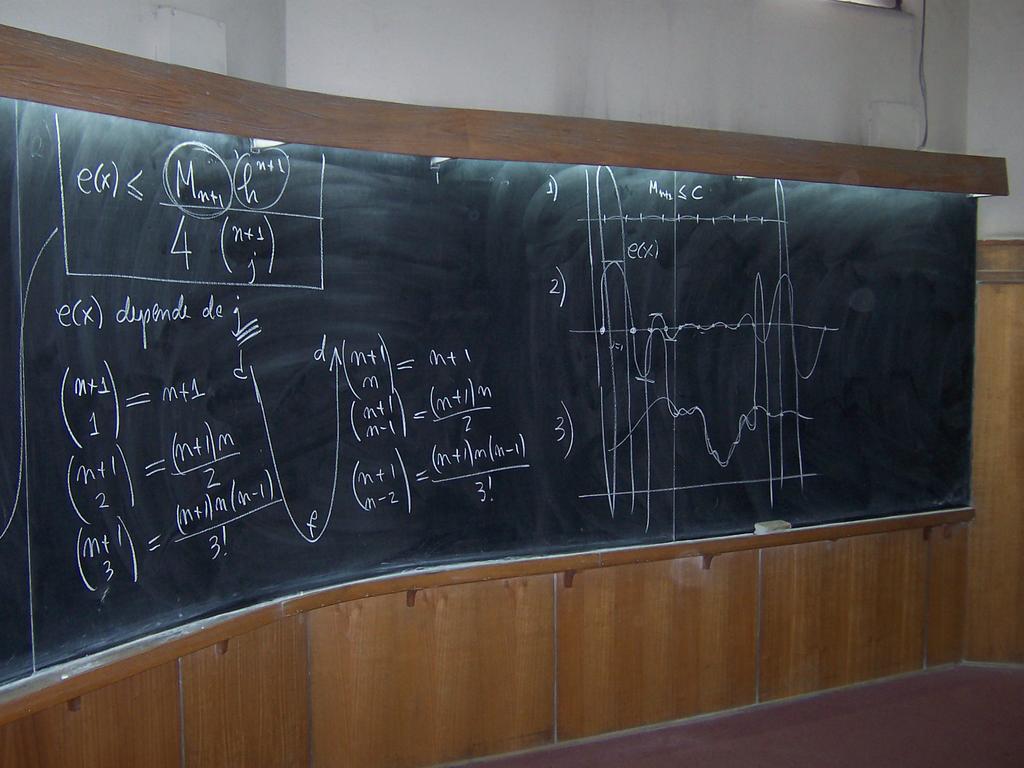 e(x) ≤ M_{n+1} h^{n+1} / 4 \binom{n+1}{j}
e(x) depende de j
\binom{n+1}{1} = n+1
\binom{n+1}{2} = (n+1)n / 2
\binom{n+1}{3} = (n+1)n(n-1) / 3!
d
d
e
\binom{n+1}{n} = n+1
\binom{n+1}{n-1} = (n+1)n / 2
\binom{n+1}{n-2} = (n+1)n(n-1) / 3!
1) M_{n+1} ≤ C
e(x)
2)
3)